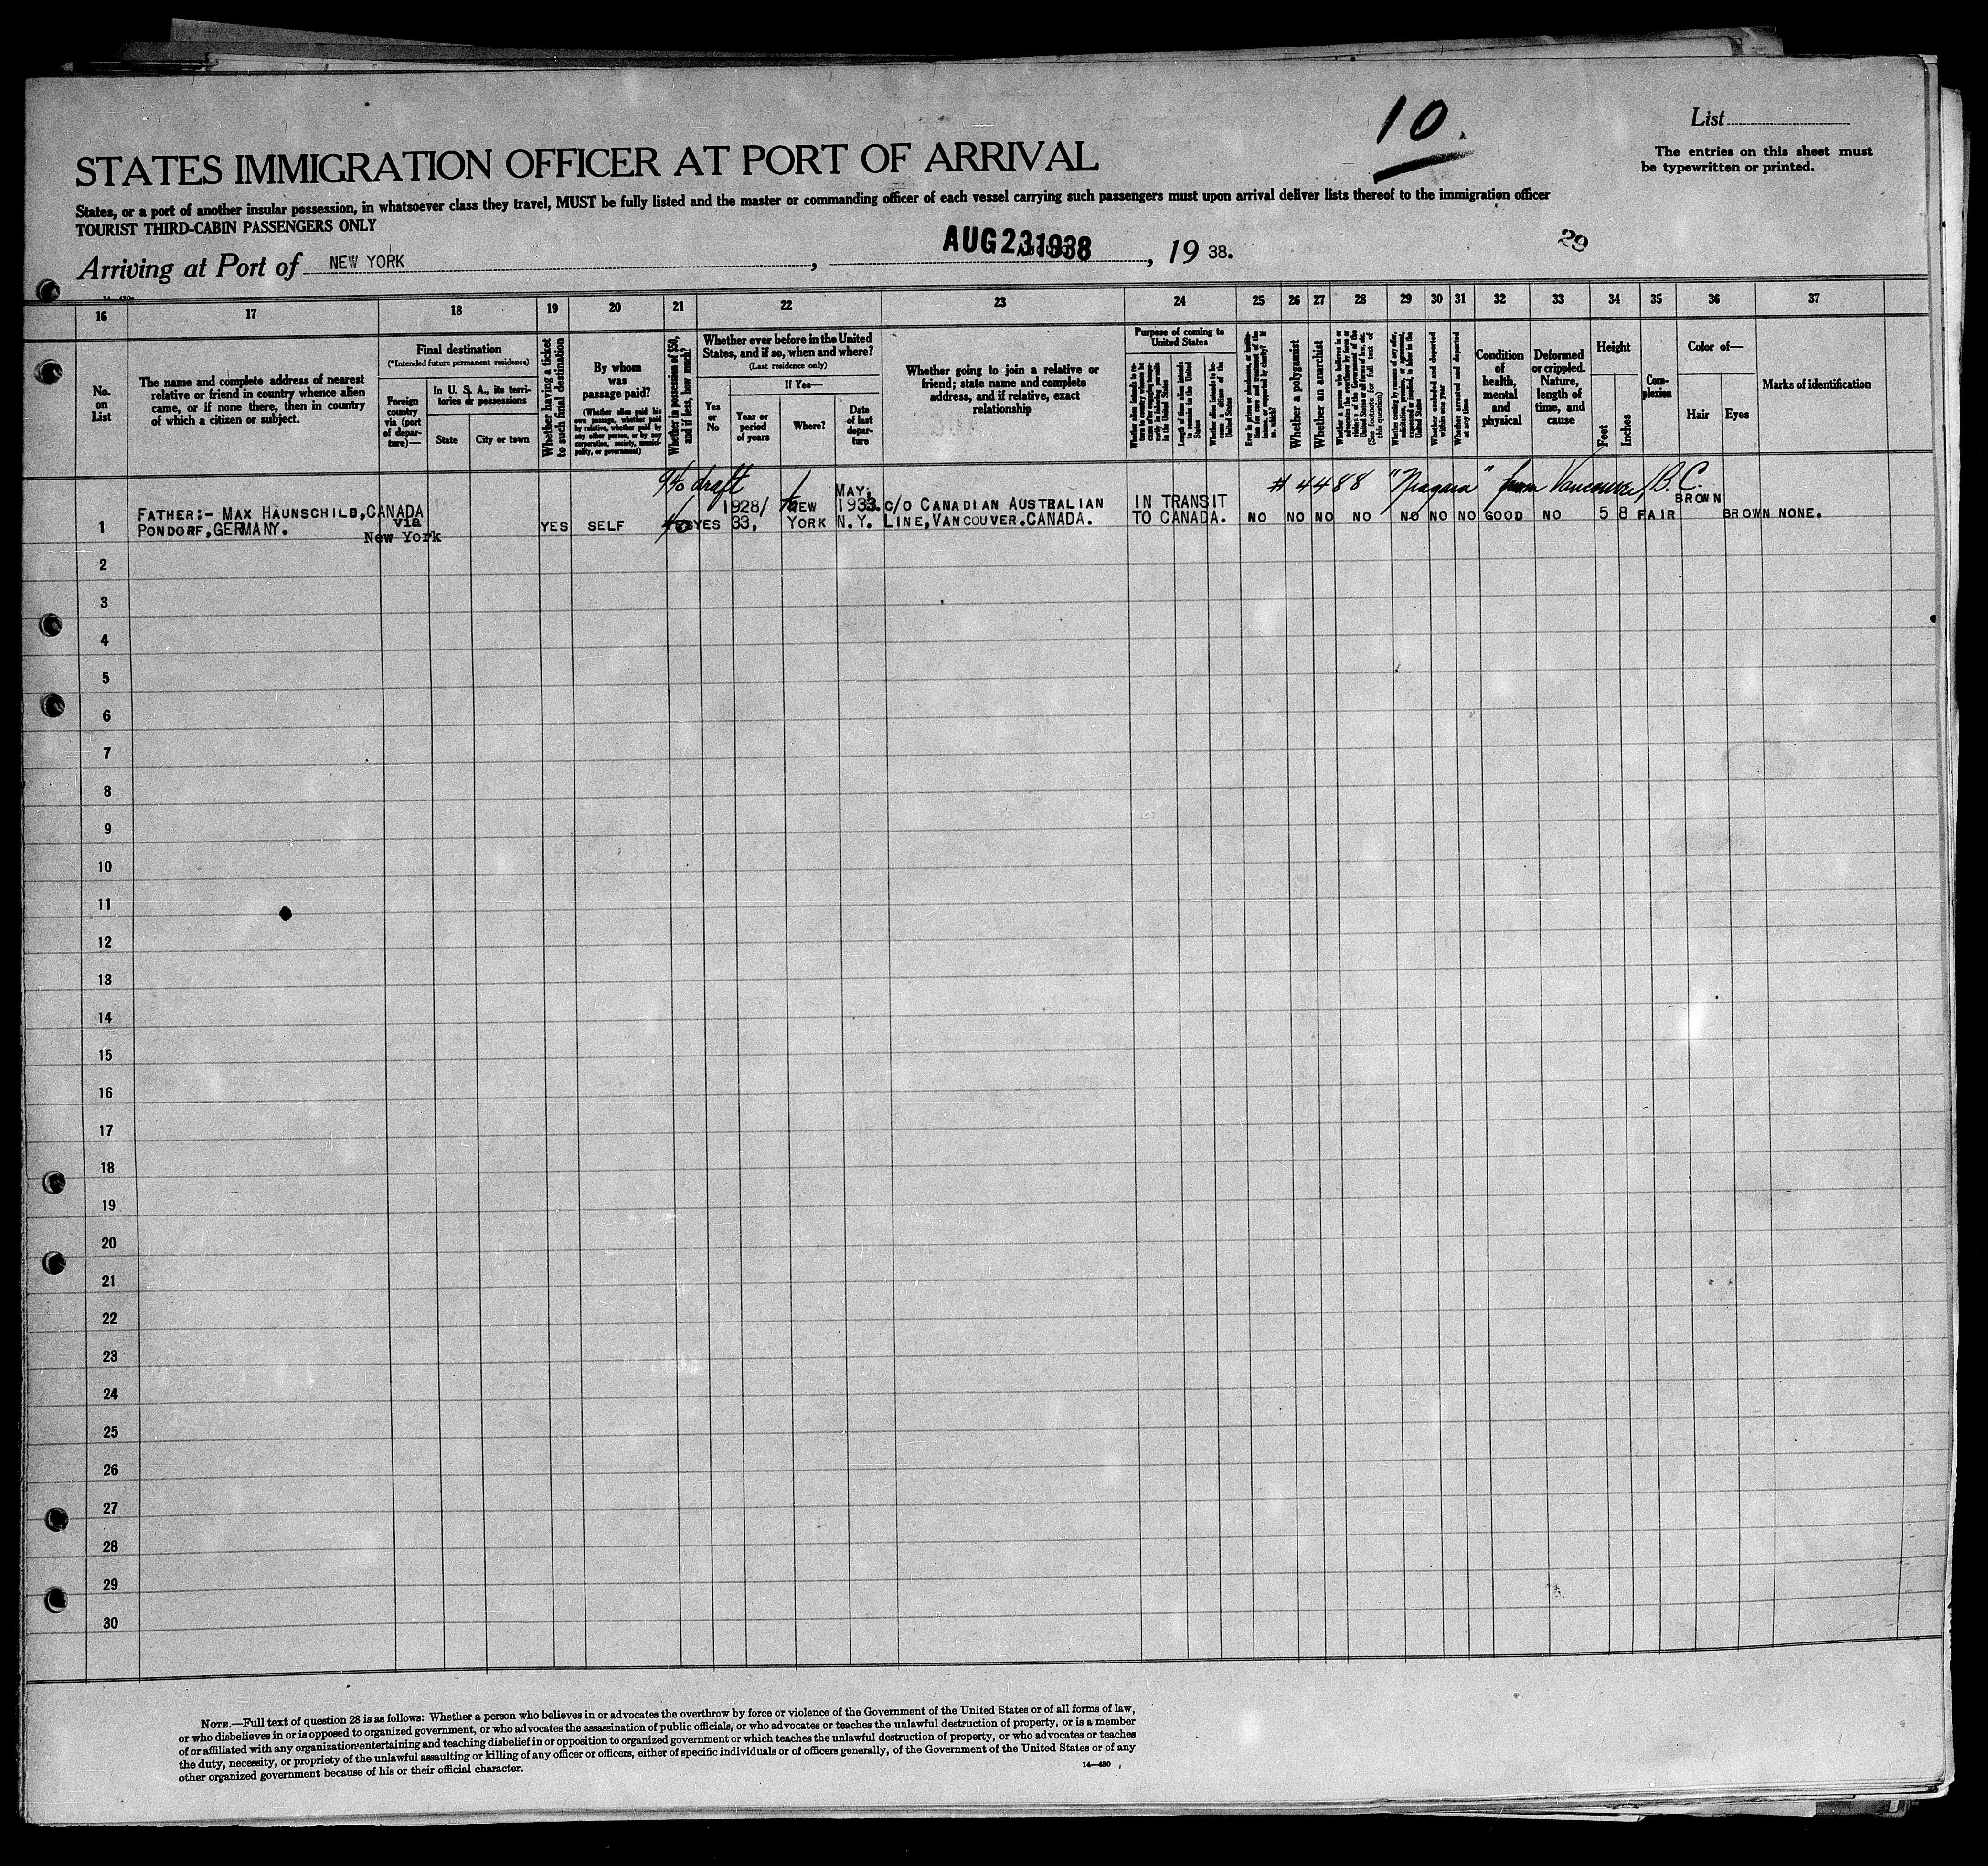 10.
List
The entries on this sheet must
be typewritten or printed.
STATES IMMIGRATION OFFICER AT PORT OF ARRIVAL
States, or a port of another insular possession, in whatsoever class they travel, MUST be fully listed and the master or commanding officer of each vessel carrying such passengers must upon arrival deliver lists thereof to the immigration officer
TOURIST THIRD-CABIN PASSENGERS ONLY
Arriving at Port of NEW YORK, AUG 23 1938, 19 38.
29
16 17 18 19 20 21 22 23 24 25 26 27 28 29 30 31 32 33 34 35 36 37
No.
on
List
The name and complete address of nearest
relative or friend in country whence alien
came, or if none there, then in country
of which a citizen or subject.
Final destination
(*Intended future permanent residence)
Foreign
country
via (port
of depar-
ture)—
In U. S. A., its terri-
tories or possessions
State
City or town
Whether having a ticket
to such final destination
By whom
was
passage paid?
(Whether alien paid his
own passage, whether paid
by relative, whether paid by
any other person, or by any
corporation, society, munici-
pality, or government)
Whether in possession of $50,
and if less, how much?
Whether ever before in the United
States, and if so, when and where?
(Last residence only)
Yes
or
No
If Yes—
Year or
period
of years
Where?
Date
of last
depar-
ture
Whether going to join a relative or
friend; state name and complete
address, and if relative, exact
relationship
Purpose of coming to
United States
Length of time alien intends
to remain in the United
States
Whether alien intends to be-
come a citizen of the
United States
Whether a polygamist
Whether an anarchist
(See footnote for full text of
this question)
Whether arrested and deported
at any time
Condition
of
health,
mental
and
physical
Deformed
or crippled.
Nature,
length of
time, and
cause
Height
Feet
Inches
Com-
plexion
Color of—
Hair
Eyes
Marks of identification
940 draft
# 4488 "Niagara" from Vancouver, B.C.
1 FATHER:- MAX HAUNSCHILD,
PONDORF, GERMANY.
CANADA
via
New York
YES SELF YES YES
1928/
33,
NEW
YORK
MAY,
1933.
N.Y.
C/O CANADIAN AUSTRALIAN
LINE, VANCOUVER. CANADA.
IN TRANSIT
TO CANADA.
NO NO NO NO NO NO NO GOOD NO 5 8 FAIR BROWN BROWN NONE.
2
3
4
5
6
7
8
9
10
11
12
13
14
15
16
17
18
19
20
21
22
23
24
25
26
27
28
29
30
NOTE.—Full text of question 28 is as follows: Whether a person who believes in or advocates the overthrow by force or violence of the Government of the United States or of all forms of law,
or who disbelieves in or is opposed to organized government, or who advocates the assassination of public officials, or who advocates or teaches the unlawful destruction of property, or is a member
of or affiliated with any organization entertaining and teaching disbelief in or opposition to organized government or which teaches the unlawful destruction of property, or who advocates or teaches
the duty, necessity, or propriety of the unlawful assaulting or killing of any officer or officers, either of specific individuals or of officers generally, of the Government of the United States or of any
other organized government because of his or their official character.
14—430